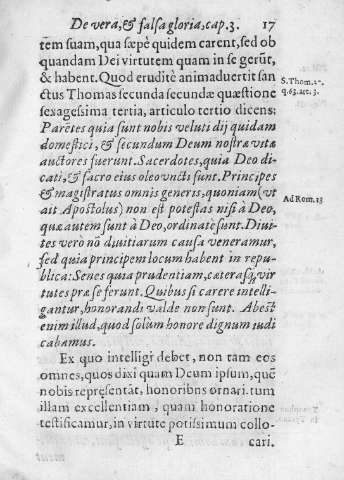 De vera, & falsa gloria, cap. 3. 17
tem suam, qua sæpè quidem carent, sed ob
quandam Dei virtutem quam in se gerũt,
& habent. Quod eruditè animaduertit san
ctus Thomas secunda secundæ quæstione
sexagessima tertia, articulo tertio dicens:
Parẽtes quia sunt nobis veluti dij quidam
domestici, & secundum Deum nostræ vitæ
auctores fuerunt. Sacerdotes, quia Deo di-
cati, & sacro eius oleo vncti sunt. Principes
& magistratus omnis generis, quoniam (vt
ait Apostolus) non est potestas nisi à Deo,
quæ autem sunt à Deo, ordinatè sunt. Diui-
tes verò nõ diuitiarum causa veneramur,
sed quia principem locum habent in repu-
blica: Senes quia prudentiam, cæterasq; vir
tutes præ se ferunt. Quibus si carere intelli-
gantur, honorandi valde non sunt. Abest
enim illud, quod solùm honore dignum iudi
cabamus.
Ex quo intelligi debet, non tam eos
omnes, quos dixi quam Deum ipsum, quẽ
nobis repræsentãt, honoribus ornari. tum
illam excellentiam, quam honoratione
testificamur, in virtute potissimum collo-
E cari.
S. Thom. 2ª.
q. 63. art. 3.
Ad Rom. 13